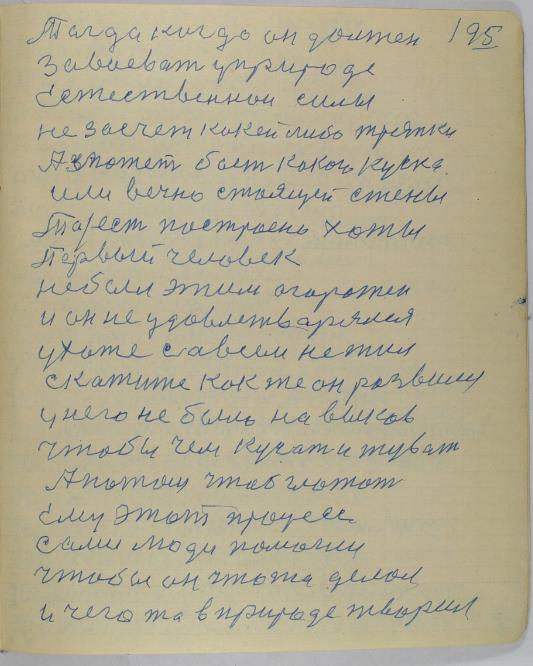 Тагда когда он должен 195
Завоеват у природе
Естественнои силы
не засчет какей либо тряпки
А может быт какого куска
или вечно стоящей стены
Та/ест построено хоты
Первый человек
небыл этим огорожен
и он не удовлетварялся
ухоже савсем не жил
скажите как же он развился
у него не было навыков
чтобы чем кусат и жуват
А потом чтоб глотат
Ему этот процесс
сами люди помогли
чтобы он чтота делал
и чего та в природе творил